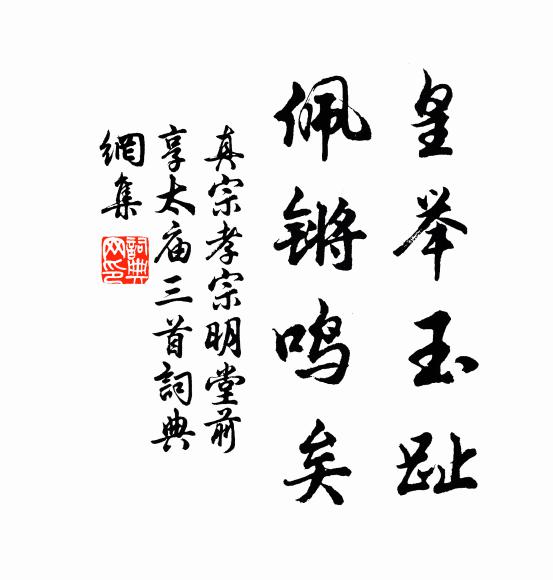 皇举玉趾
佩锵鸣矣
真宗孝宗明堂前
享太庙三首词典
網集
詞典網印